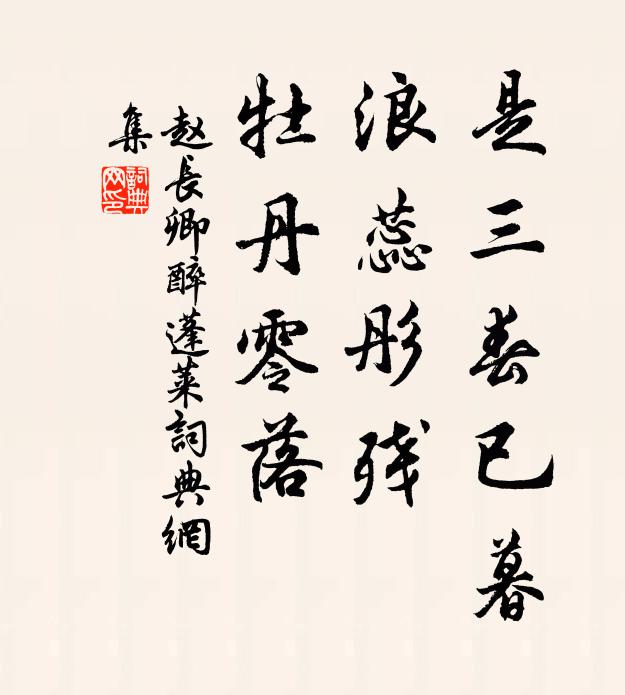 是三春已暮
浪蕊彤残
牡丹零落
赵長卿醉蓬莱詞典網
集
詞典網印